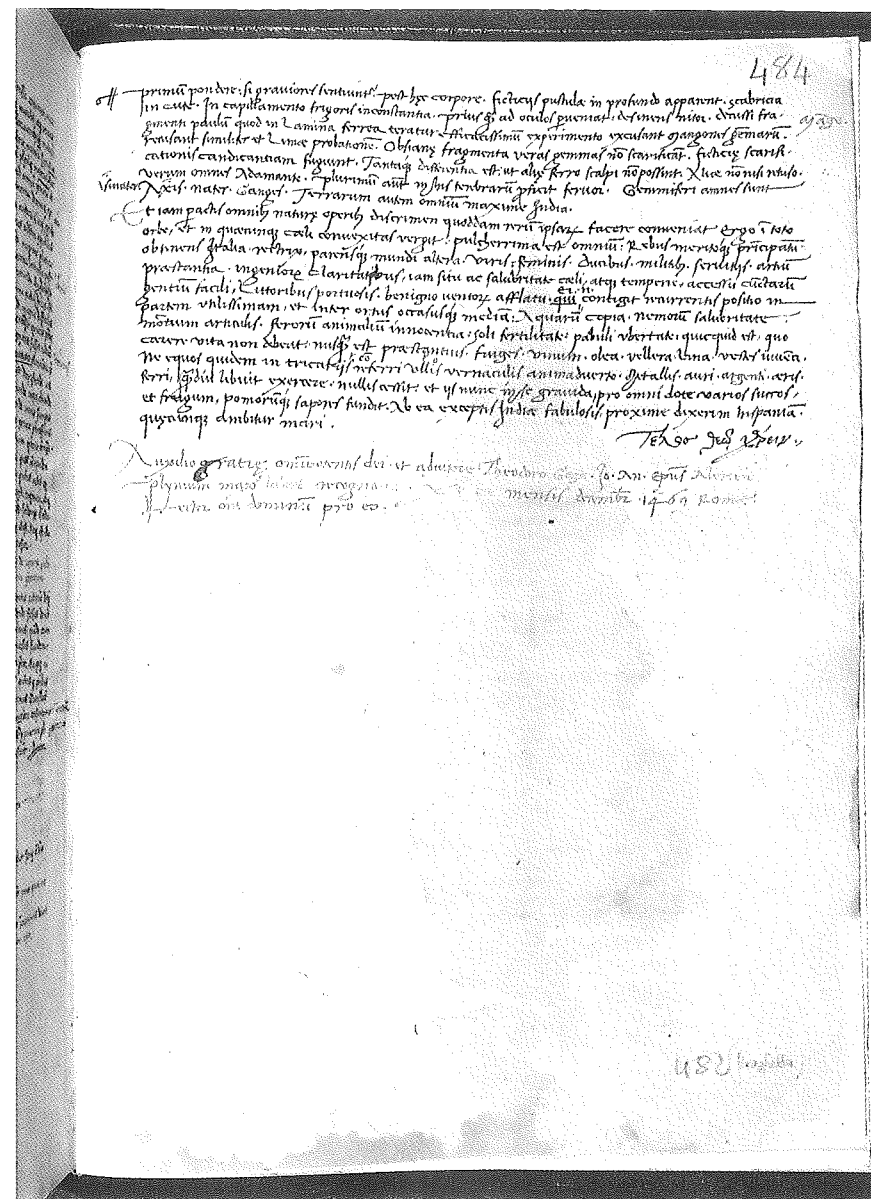 484
primũ pondere. si graviores sentiunt.ᵉ post hęc corpore. ficticijs pustulæ in profundo apparent. scabricia
in cute. In capillamento frigoris inconstantia. Prius ꝗ̃ ad oculos pveniat. desinens nitor. decussi fra
gmenti paulũ quod in lamina ferrea teratur efficacissimũ experimento excusant mangones gemmarũ.
recusant similiter et limæ probationẽ. Obsianę fragmenta veras gemmas nõ scarificãt. ficticię scarifi
cationis candicantiam fugiunt. Tantaꝗ differentia est. ut alię ferro scalpi nõ possint. Alię nõ nisi retuso.
verum omnes Adamante. plurimũ aut in his terebrarũ pficit fervor. Gemmiferi amnes sunt
Axis. nater. Ganges. Terrarum autem omniũ maxime India.
Et iam pactis omnibꝰ naturę operibꝰ discrimen quoddam rerũ ipsarꝝ facere conveniat Ergo ĩ toto
orbe, et in quacunque cæli convexitas vergit. pulcherrima est omniũ. Rebus meritoꝗ principatũ
obtinens Italia. rectrix, parensꝗ mundi altera. Viris. feminis. Ducibus. militibꝰ. servitijs. artiũ
præstantia. ingeniorꝝ claritatibus, iam situ ac salubritate cæli, atꝗ temperie. accessu cunctarũ
gentiũ facili, Littoribus portuosis. benigno ventorꝝ afflatu. qui contigit recurrentis positio in
partem utilissimam, et inter ortus occasusꝗ mediũ. Aquarũ copia. nemorũ salubritate
montium articulis. ferorũ animaliũ innocentia. soli fertilitate. pabuli ubertate. quicquid est, quo
carere vita non debeat. nusꝗ̃ est præstantius. fruges. vinum. olea. vellera. lina. vestes iuvẽci.
Ne equos quidem in tricarijs referri ullos vernaculis animadverto. Metallis. auri. argenti. æris.
ferri, ꝗ̃diu libuit exercere. nullis cessit. et ijs nunc in se gravida, pro omni dote varios succos,
et frugum, pomorumꝗ sapores fundit. Ab ea exceptis Indiæ fabulosis, proxime dixerim Hispaniã
quęcunque ambitur mari.
Auxilio gratię omnipotentis dei et adiutore Theodoro Gaza. Jo. An. epũs Alerien
plynium recogn
mensis decembr 1469 Rome
pro eo.
482